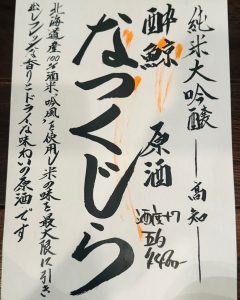 純米大吟醸 ― 高知 ―
酔鯨 原酒
なつくじら
酒度+7
北海道産100%酒米、吟風を使用し米の味を最大限に引き
出しフレッシュな香りとドライな味わいの原酒です